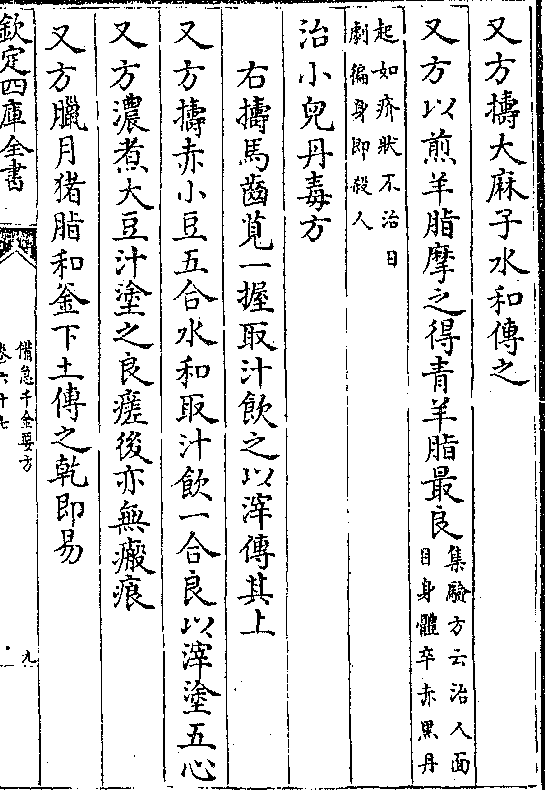 又方擣大麻子水和傅之
又方以煎羊脂摩之得青羊脂最良集驗方云治人面
目身體卒赤黑丹
起如疥狀不治日
劇徧身即殺人
治小兒丹毒方
右擣馬齒莧一握取汁飲之以滓傅其上
又方擣赤小豆五合水和取汁飲一合良以滓塗五心
又方濃煮大豆汁塗之良瘥後亦無瘢痕
又方臘月猪脂和釡下土傅之乾即易
欽定四庫全書
備急千金要方
九